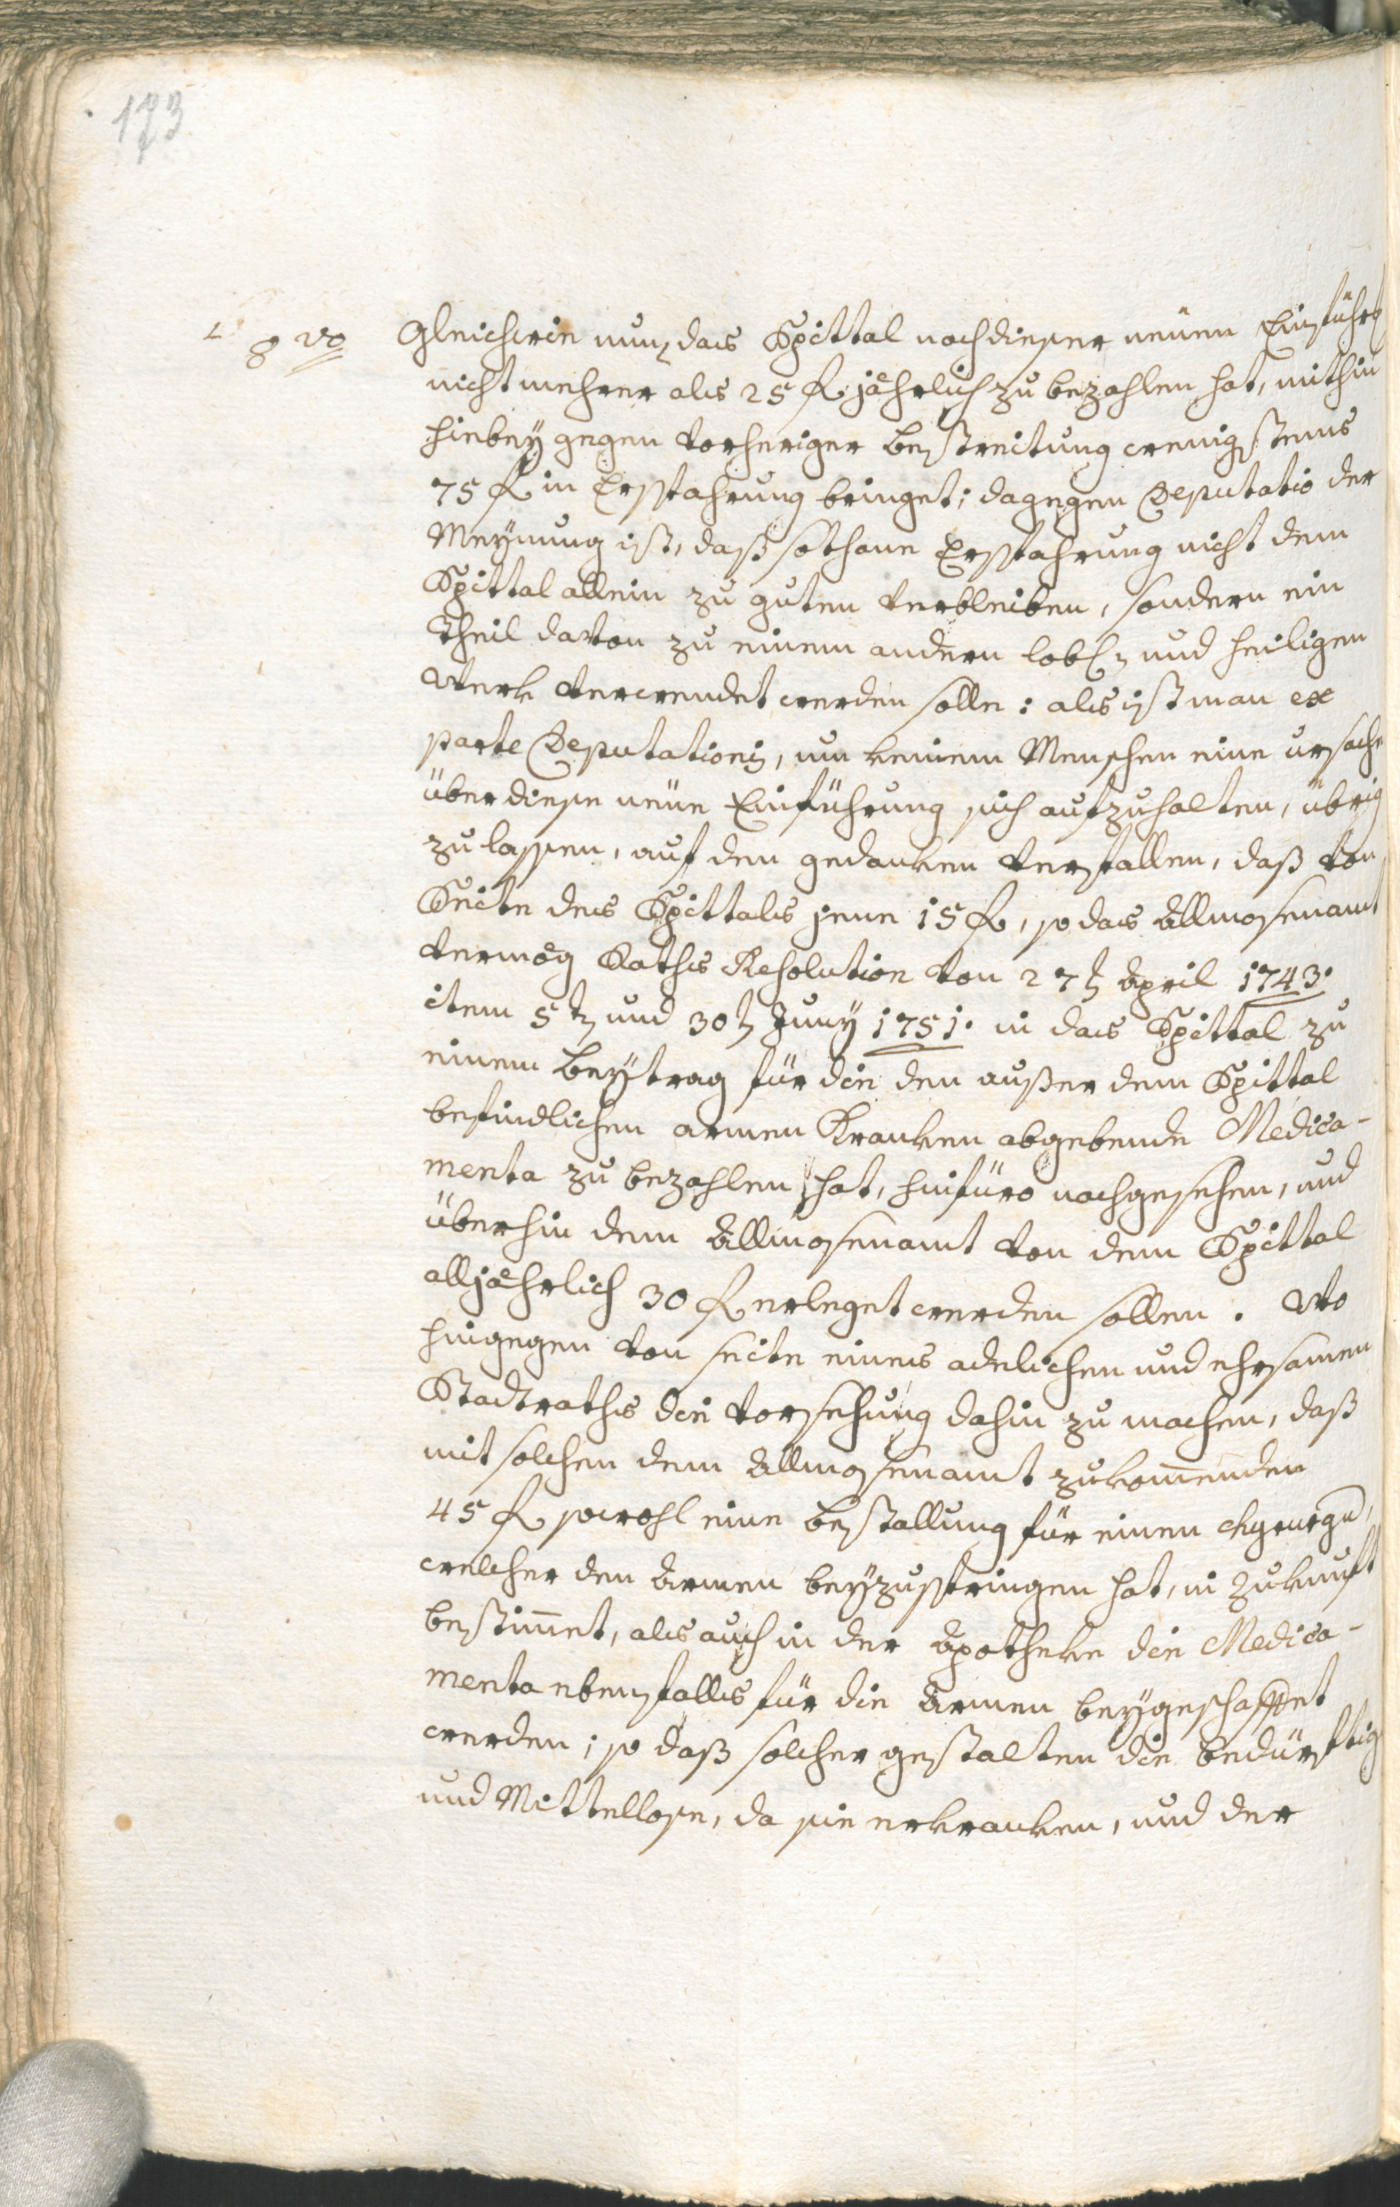 173
8 vo
Gleichwie nun das Spittal nach dieser neüen Einführ
nicht mehrer als 25 fl jährlich zu bezahlen hat, mithin
hiebey gegen vorheriger bestreitung wenigstens
75 fl in Ersparung bringet; dagegen Deputatio der
Meynung ist, daß sothane Ersparung nicht dem
Spittal allein zu guten verbleiben, sondern ein
Theil davon zu einem andern lobl: und heiligen
Werk verwendet werden solle: als ist man ex
parte Deputationis, um keinem Menschen eine ursach
über diese neüe Einführung sich aufzuhalten, übrig
zu lassen, auf den gedanken verfallen, daß von
Seite des Spittals jene 15 fl, so das Allmosenamt
vermög Raths Resolution von 27t April 1743.
item 5t und 30t Juny 1751. in das Spittal zu
einem beytrag für die den außer dem Spittal
befindlichen armen Kranken abgebende Medica-
menta zu bezahlen hat, hinfüro nachgesehen, und
überhin dem Allmosenamt von dem Spittal
alljährlich 30 fl erleget werden sollen. Wo
hingegen von seite eines adelichen und ehrsamen
Stadtraths die vorsehung dahin zu machen, daß
mit solchen dem Allmosenamt zukom̄enden
45 fl sowohl eine bestallung für einen chyrurgu,
welcher den Armen beyzuspringen hat, in Zukunft
bestim̄et, als auch in der Apotheke die Medica-
menta ebenfalls für die Armen beygeschaffet
werden; so daß solcher gestalten die bedürftig
und Mittellose, da sie erkranken, und der